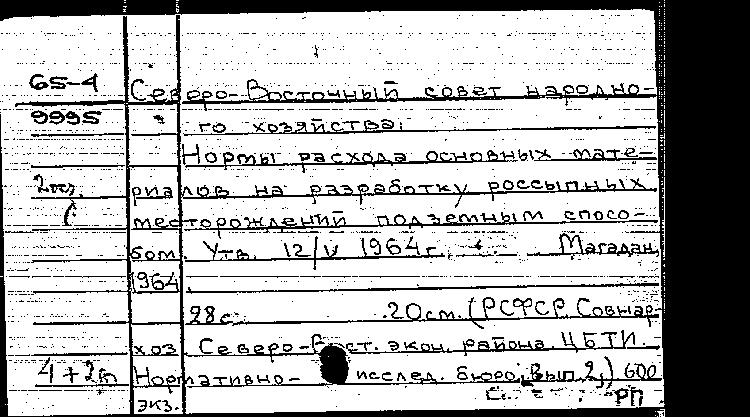 65-4 Северо-Восточный совет народно-
9995 го хозяйства.
Нормы расхода основных мате-
2 экз. риалов на разработку россыпных
месторождений подземным спосо-
бом. Утв. 12/IV 1964 г. Магадан,
1964
28 с. 20 см. (РСФСР. Совнар-
хоз Северо-Вост. экон. района. ЦБТИ.
4+2п Нормативно- исслед. бюро, Вып. 2,) 600
экз.
РП